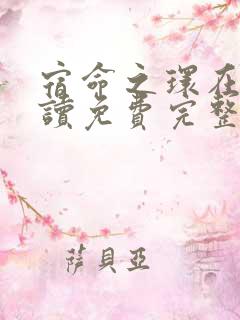 宿命之環在
讀免費完整
薩貝亞